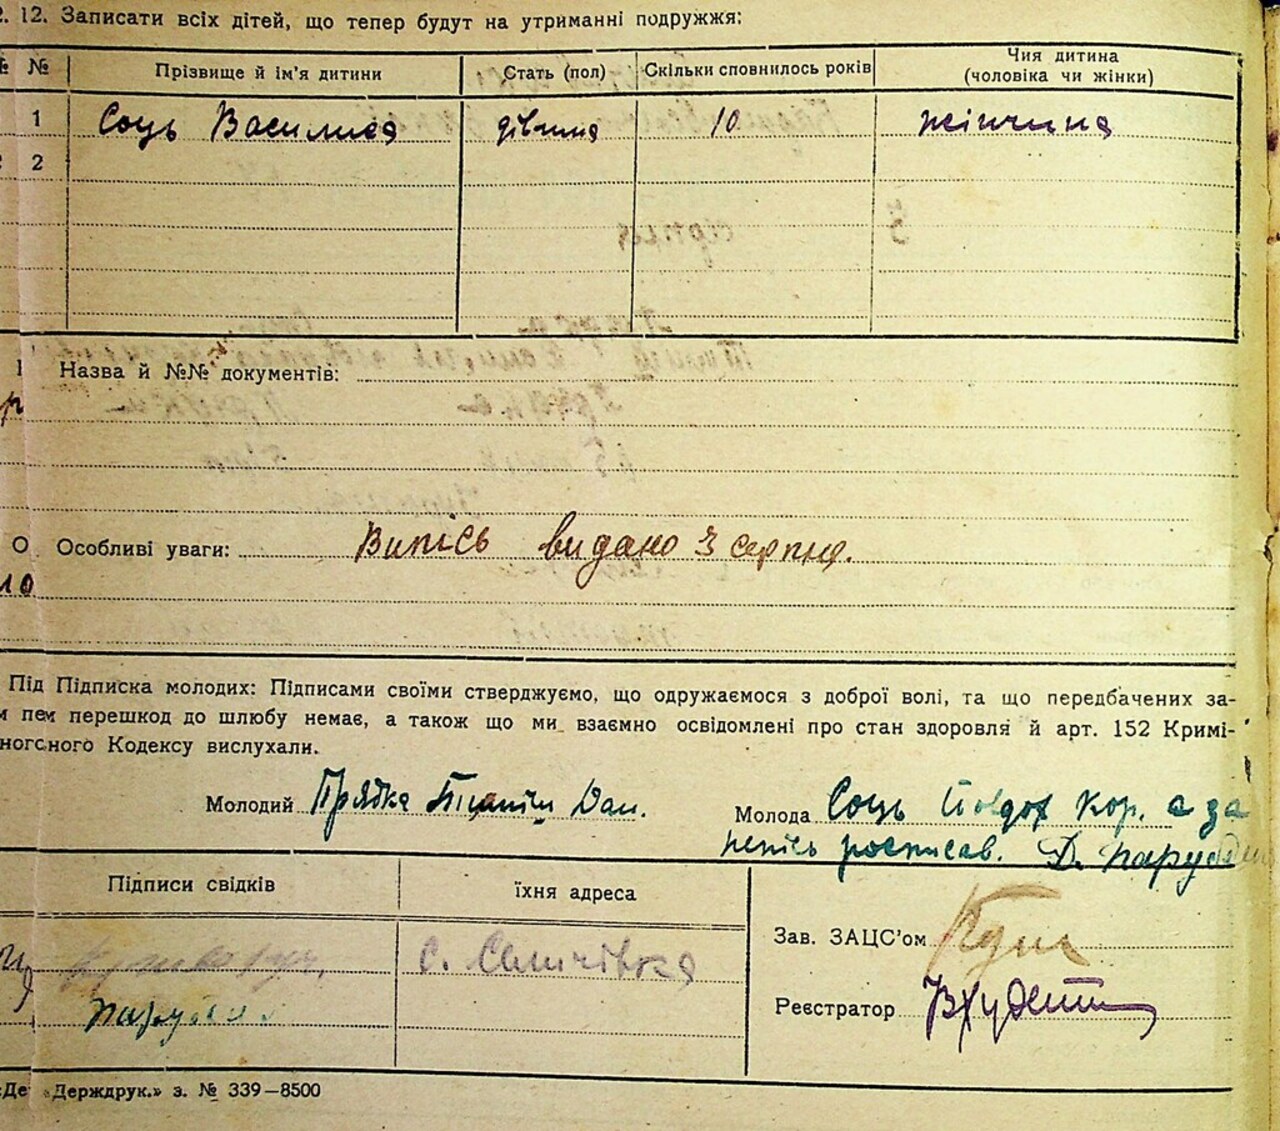 2. 12. Записати всіх дітей, що тепер будут на утриманні подружжя:
№ № Прізвище й ім'я дитини Стать (пол) Скільки сповнилось років Чия дитина (чоловіка чи жінки)
1 Соць Василися дівчина 10 жінчина
2
Назва й №№ документів:
О Особливі уваги: Випись видано 3 серпня.
10
Під Підписка молодих: Підписами своїми стверджуємо, що одружаємося з доброї волі, та що передбачених за-
пем перешкод до шлюбу немає, а також що ми взаємно освідомлені про стан здоровля й арт. 152 Кримі-
ногсного Кодексу вислухали.
Молодий Прядка Дан. Молода Соць Кор. а за
непись росписав. Д. Паруб
Підписи свідків їхня адреса
Зав. ЗАЦС'ом
с.
Паруб
Реєстратор
«Де «Держдрук.» з. № 339—8500